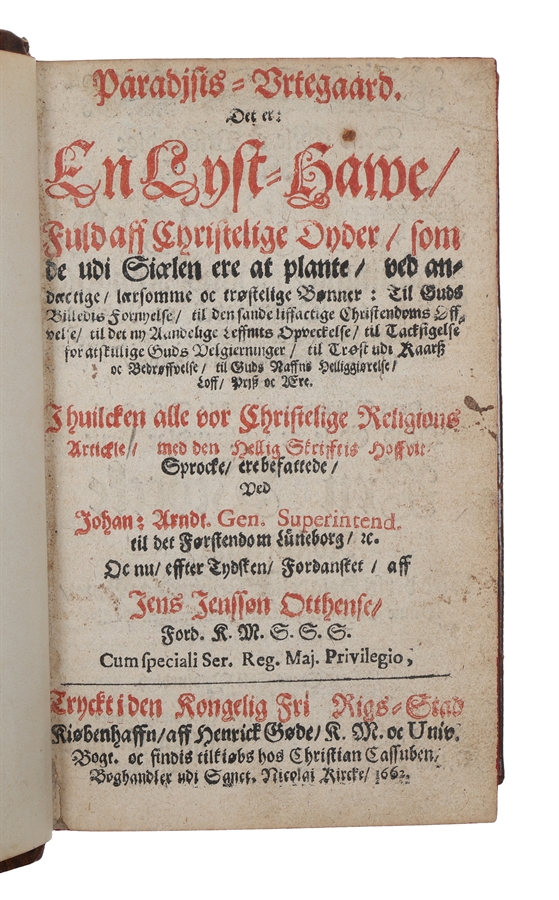 Paradjsis-Urtegaard.
Det er:
En Lyst-Hawe/
Fuld aff Christelige Dyder/ som
de udi Siælen ere at plante/ ved an-
dæctige/ lærsomme oc trøstelige Bønner: Til Guds
Billedis Fornyelse/ til den sande liffactige Christendoms Øff-
velse/ til det ny Aandelige Leffnits Opveckelse/ til Tacksigelse
for atskillige Guds Velgierninger/ til Trøst udi Kaarß
oc Bedrøffvelse/ til Guds Naffns Helliggiørelse/
Loff/ Prjß oc Ære.
J huilcken alle vor Christelige Religions
Artickle/ med den Hellig Skrifftis Hoffvit-
Sprocke/ ere befattede/
Ved
Johan: Arndt. Gen. Superintend.
til det Førstendom Lüneborg/ ꝛc.
Oc nu/ effter Tydsken/ Fordansket/ aff
Jens Jenssøn Otthense/
Ford. K. M. S. S. S.
Cum speciali Ser. Reg. Maj. Privilegio,
Tryckt i den Kongelig Fri Rigs-Stad
Kiøbenhaffn/ aff Henrick Gøde/ K. M. oc Univ.
Bogt. oc findis til kiøbs hos Christian Cassuben/
Boghandler udi Sanct. Nicolai Kircke/ 1662.